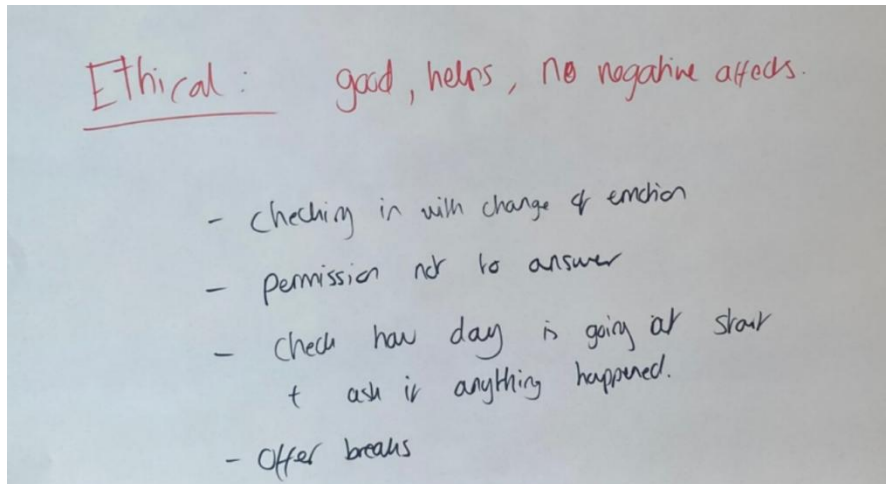 Ethical: good, helps, no negative affects.
- checking in with change of emotion
- permission not to answer
- check how day is going at start
+ ask if anything happened.
- Offer breaks